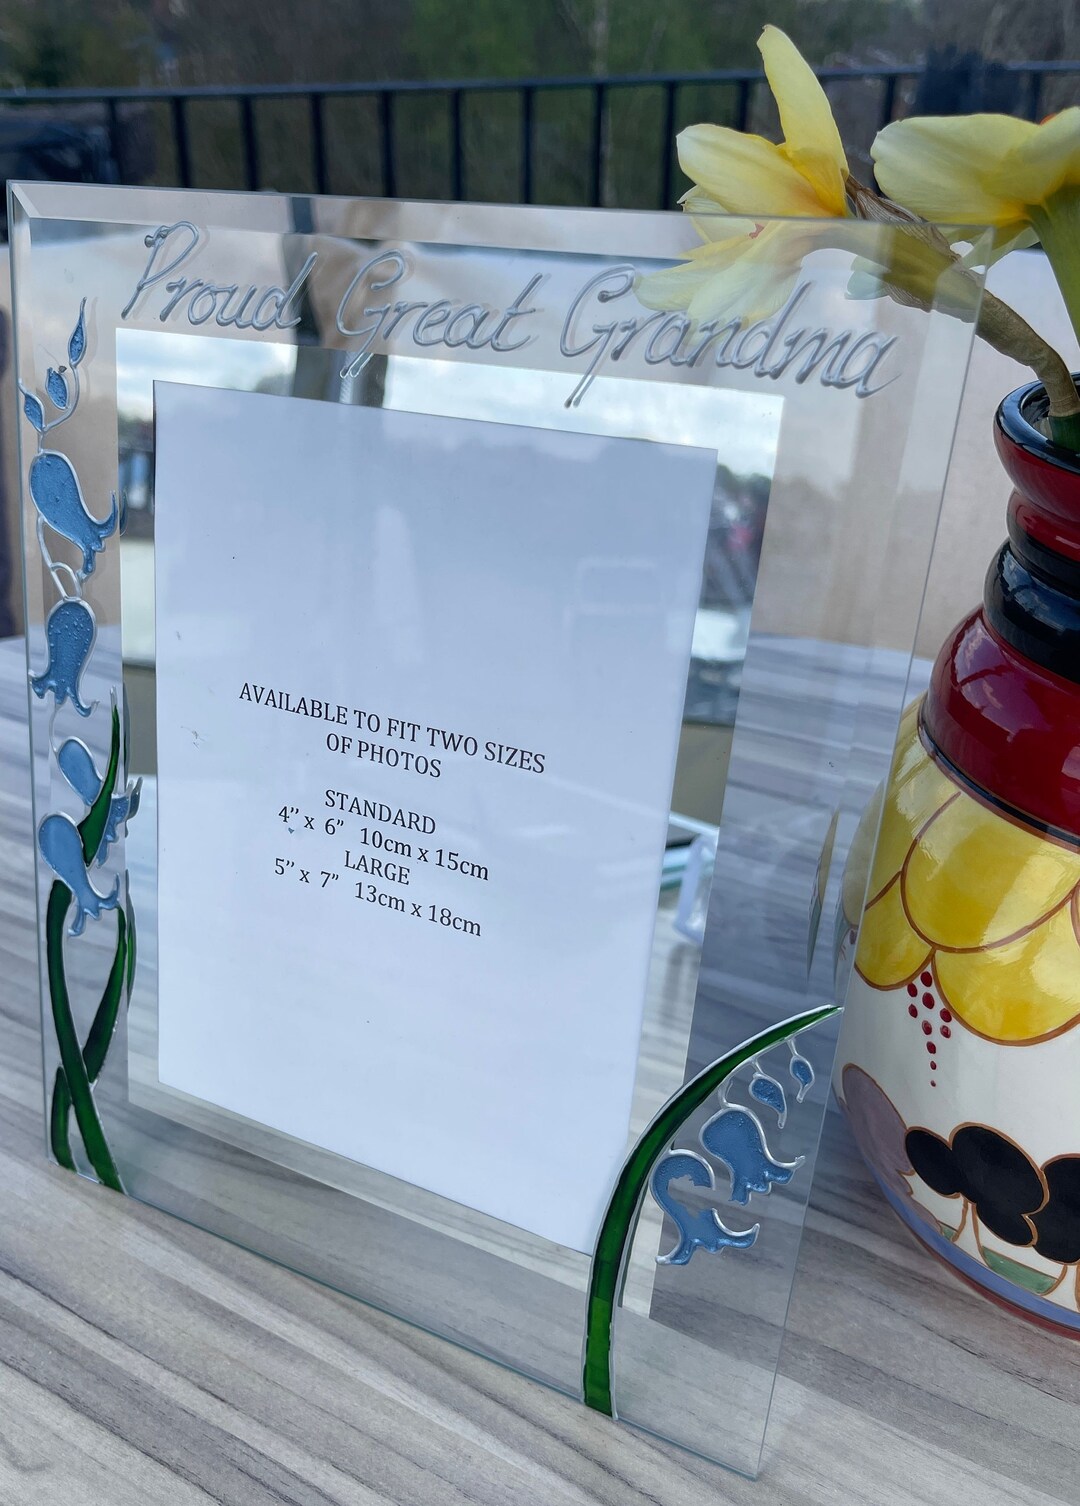 Proud Great Grandma
AVAILABLE TO FIT TWO SIZES
OF PHOTOS
STANDARD
4’’ x 6” 10cm x 15cm
LARGE
5’’ x 7” 13cm x 18cm